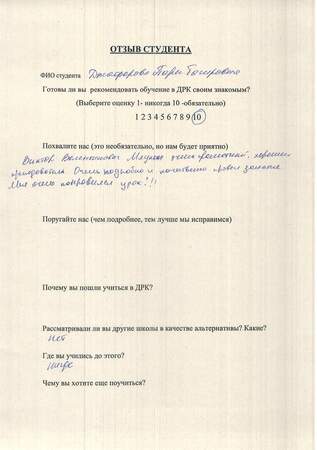 ОТЗЫВ СТУДЕНТА
ФИО студента
Готовы ли вы рекомендовать обучение в ДРК своим знакомым?
(Выберите оценку 1- никогда 10 -обязательно)
1 2 3 4 5 6 7 8 9 10
Похвалите нас (это необязательно, но нам будет приятно)
Виктор Валентинович очень грамотный, хороший
преподаватель. Очень подробно и провел занятие
Мне очень понравился урок!!!
Поругайте нас (чем подробнее, тем лучше мы исправимся)
Почему вы пошли учиться в ДРК?
Рассматривали ли вы другие школы в качестве альтернативы? Какие?
нет
Где вы учились до этого?
Чему вы хотите еще поучиться?